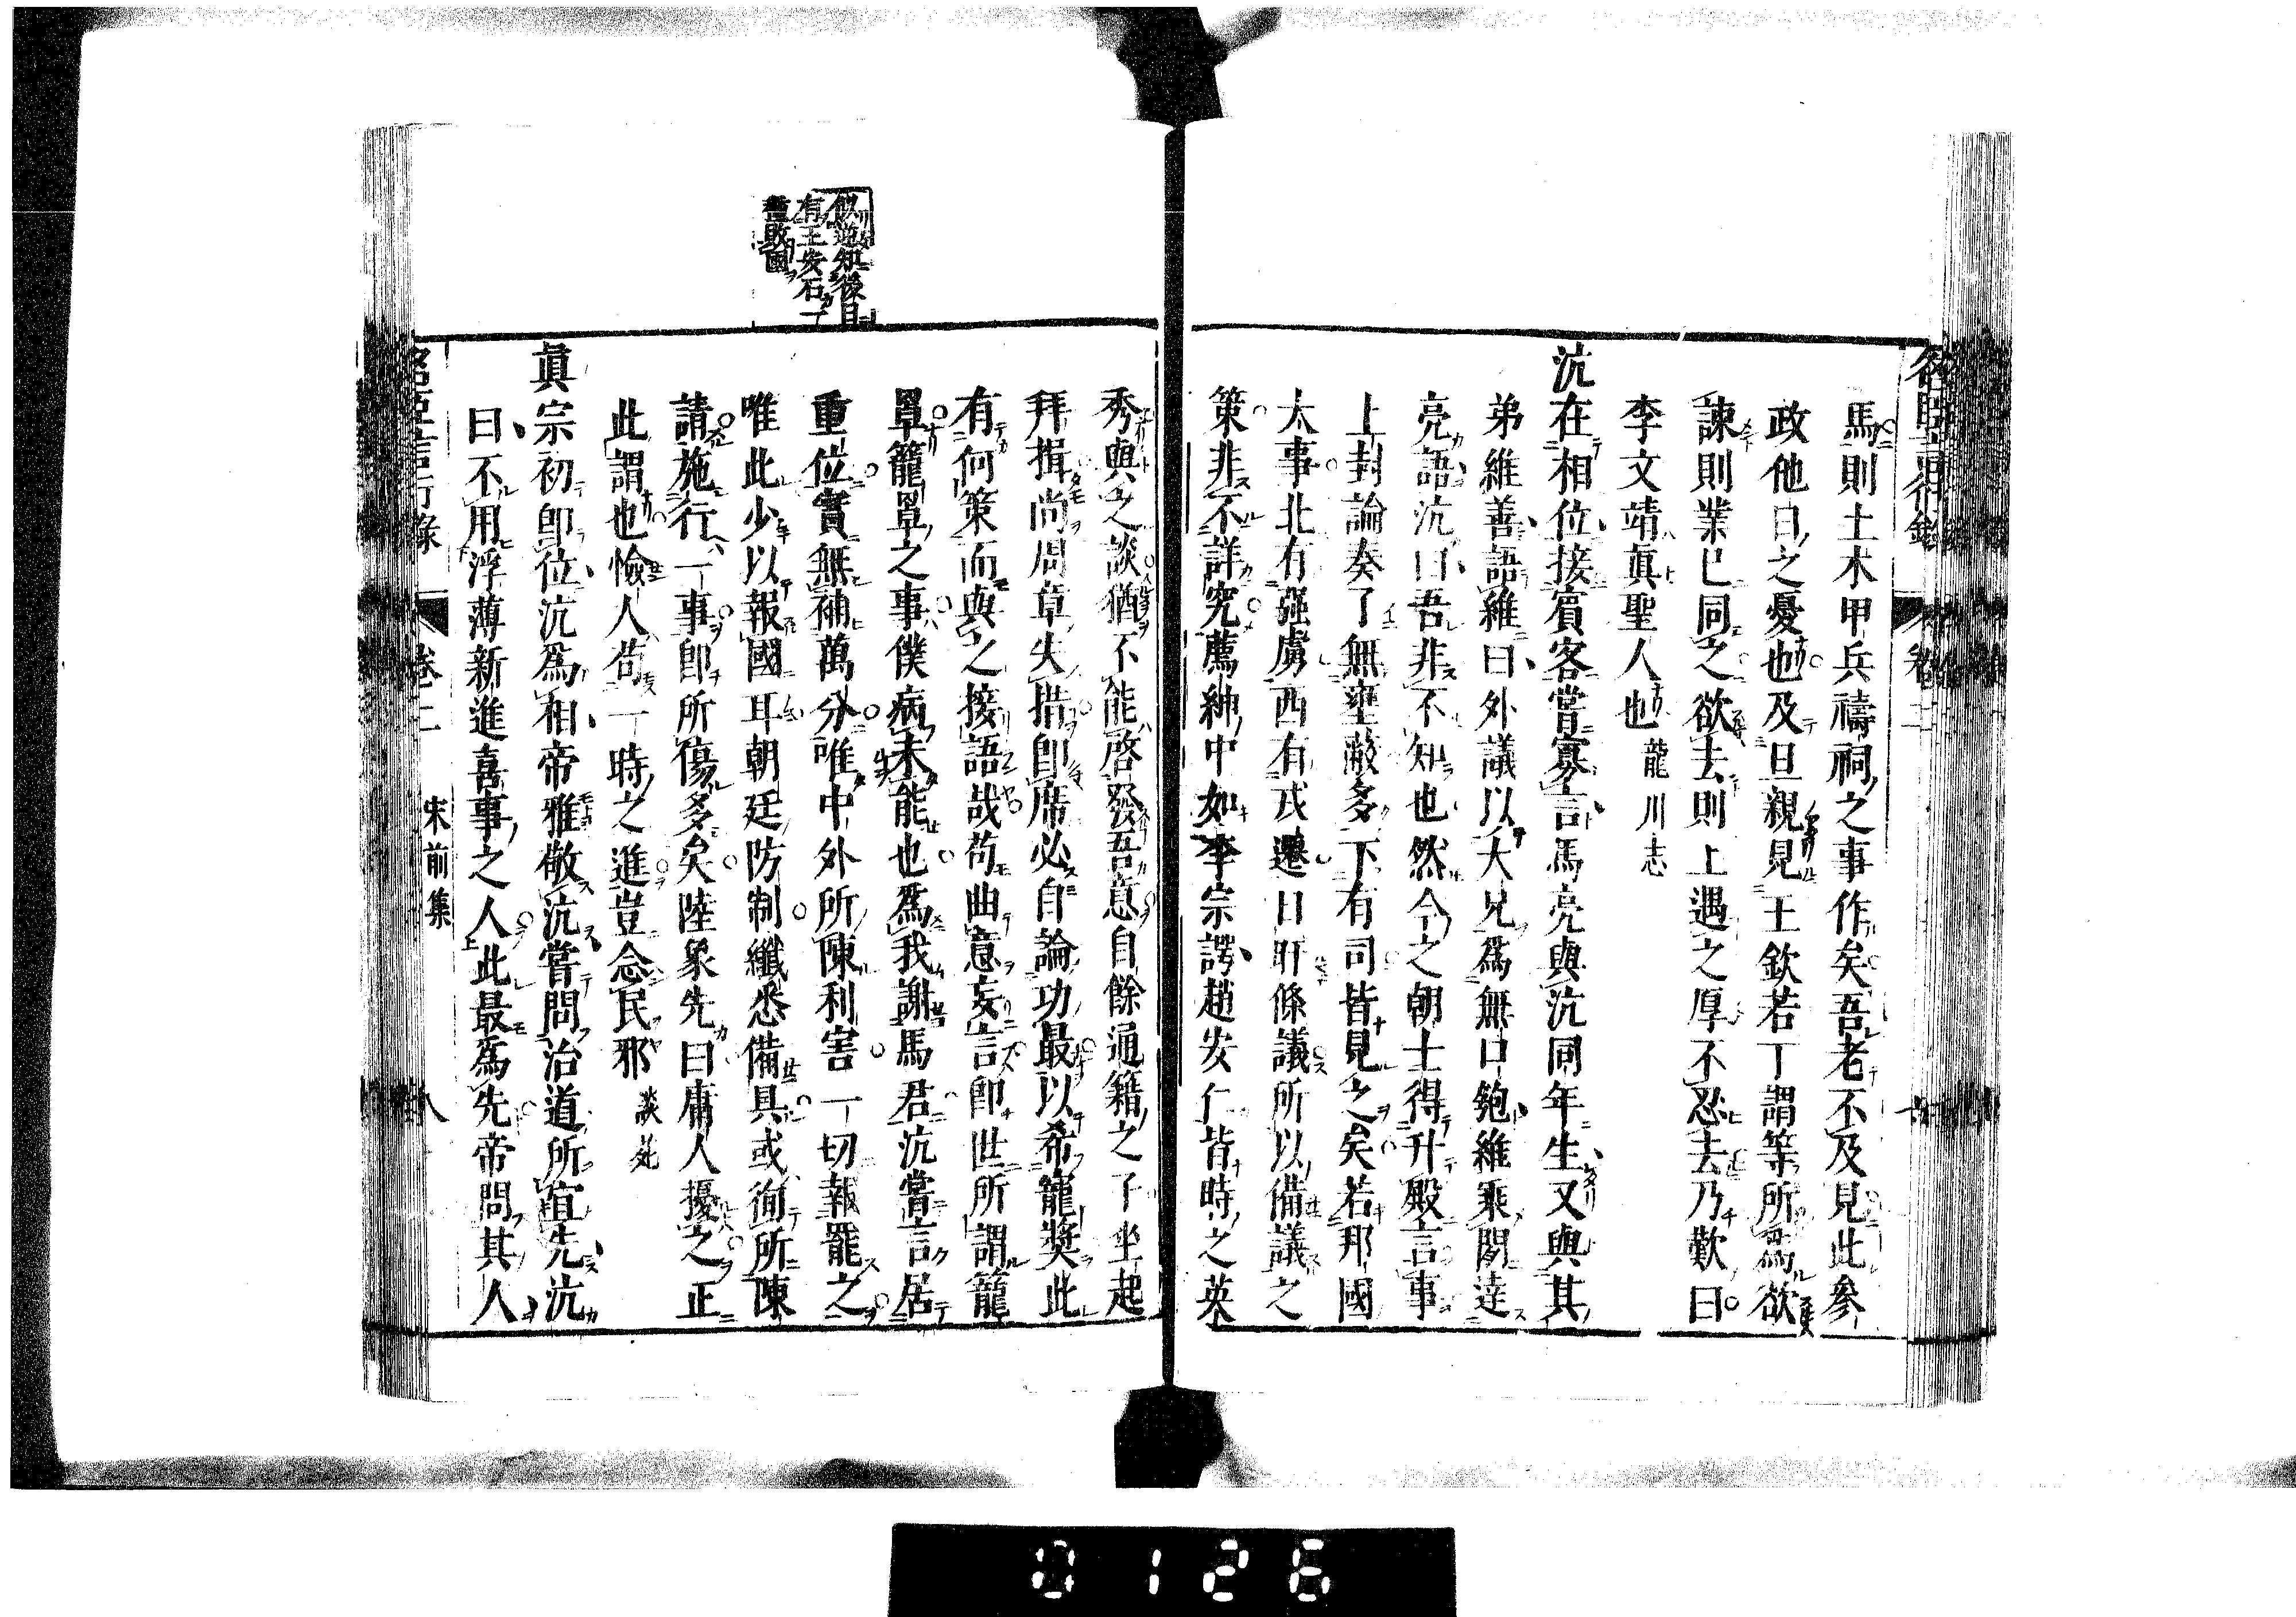 馬則土木甲兵禱祠之事作矣吾老不及見此參
政他日之憂也及旦親見王欽若丁謂等所爲欲
諫則業已同之欲去則上遇之厚不忍去乃歎曰
李文靖眞聖人也 龍川志
沆在相位接賓客嘗寡言馬亮與沆同年生又與其
弟維善語維曰外議以大兄爲無口匏維乘間達
亮語沆曰吾非不知也然今之朝士得升殿言事
上封論奏了無壅蔽多下有司皆見之矣若邦國
大事北有强虜西有戎遷日旰條議所以備議之
策非不詳究薦紳中如李宗諤趙安仁皆時之英
秀與之談猶不能啓發吾意自餘通籍之子坐起
拜揖尚周章失措卽席必自論功最以希寵奬此
有何策而與之接語哉苟曲意妄言卽世所謂籠
罩籠罩之事僕病未能也爲我謝馬君沆嘗言居
重位實無補萬分唯中外所陳利害一切報罷之
唯此少以報國耳朝廷防制纖悉備具或徇所陳
請施行一事卽所傷多矣陸象先曰庸人擾之正
此謂也憸人苟一時之進豈念民邪 談苑
眞宗初卽位沆爲相帝雅敬沆嘗問治道所宜先沆
曰不用浮薄新進喜事之人此最爲先帝問其人
名臣言行錄 卷二 宋前集 八
有王安石一
種敗國
0126